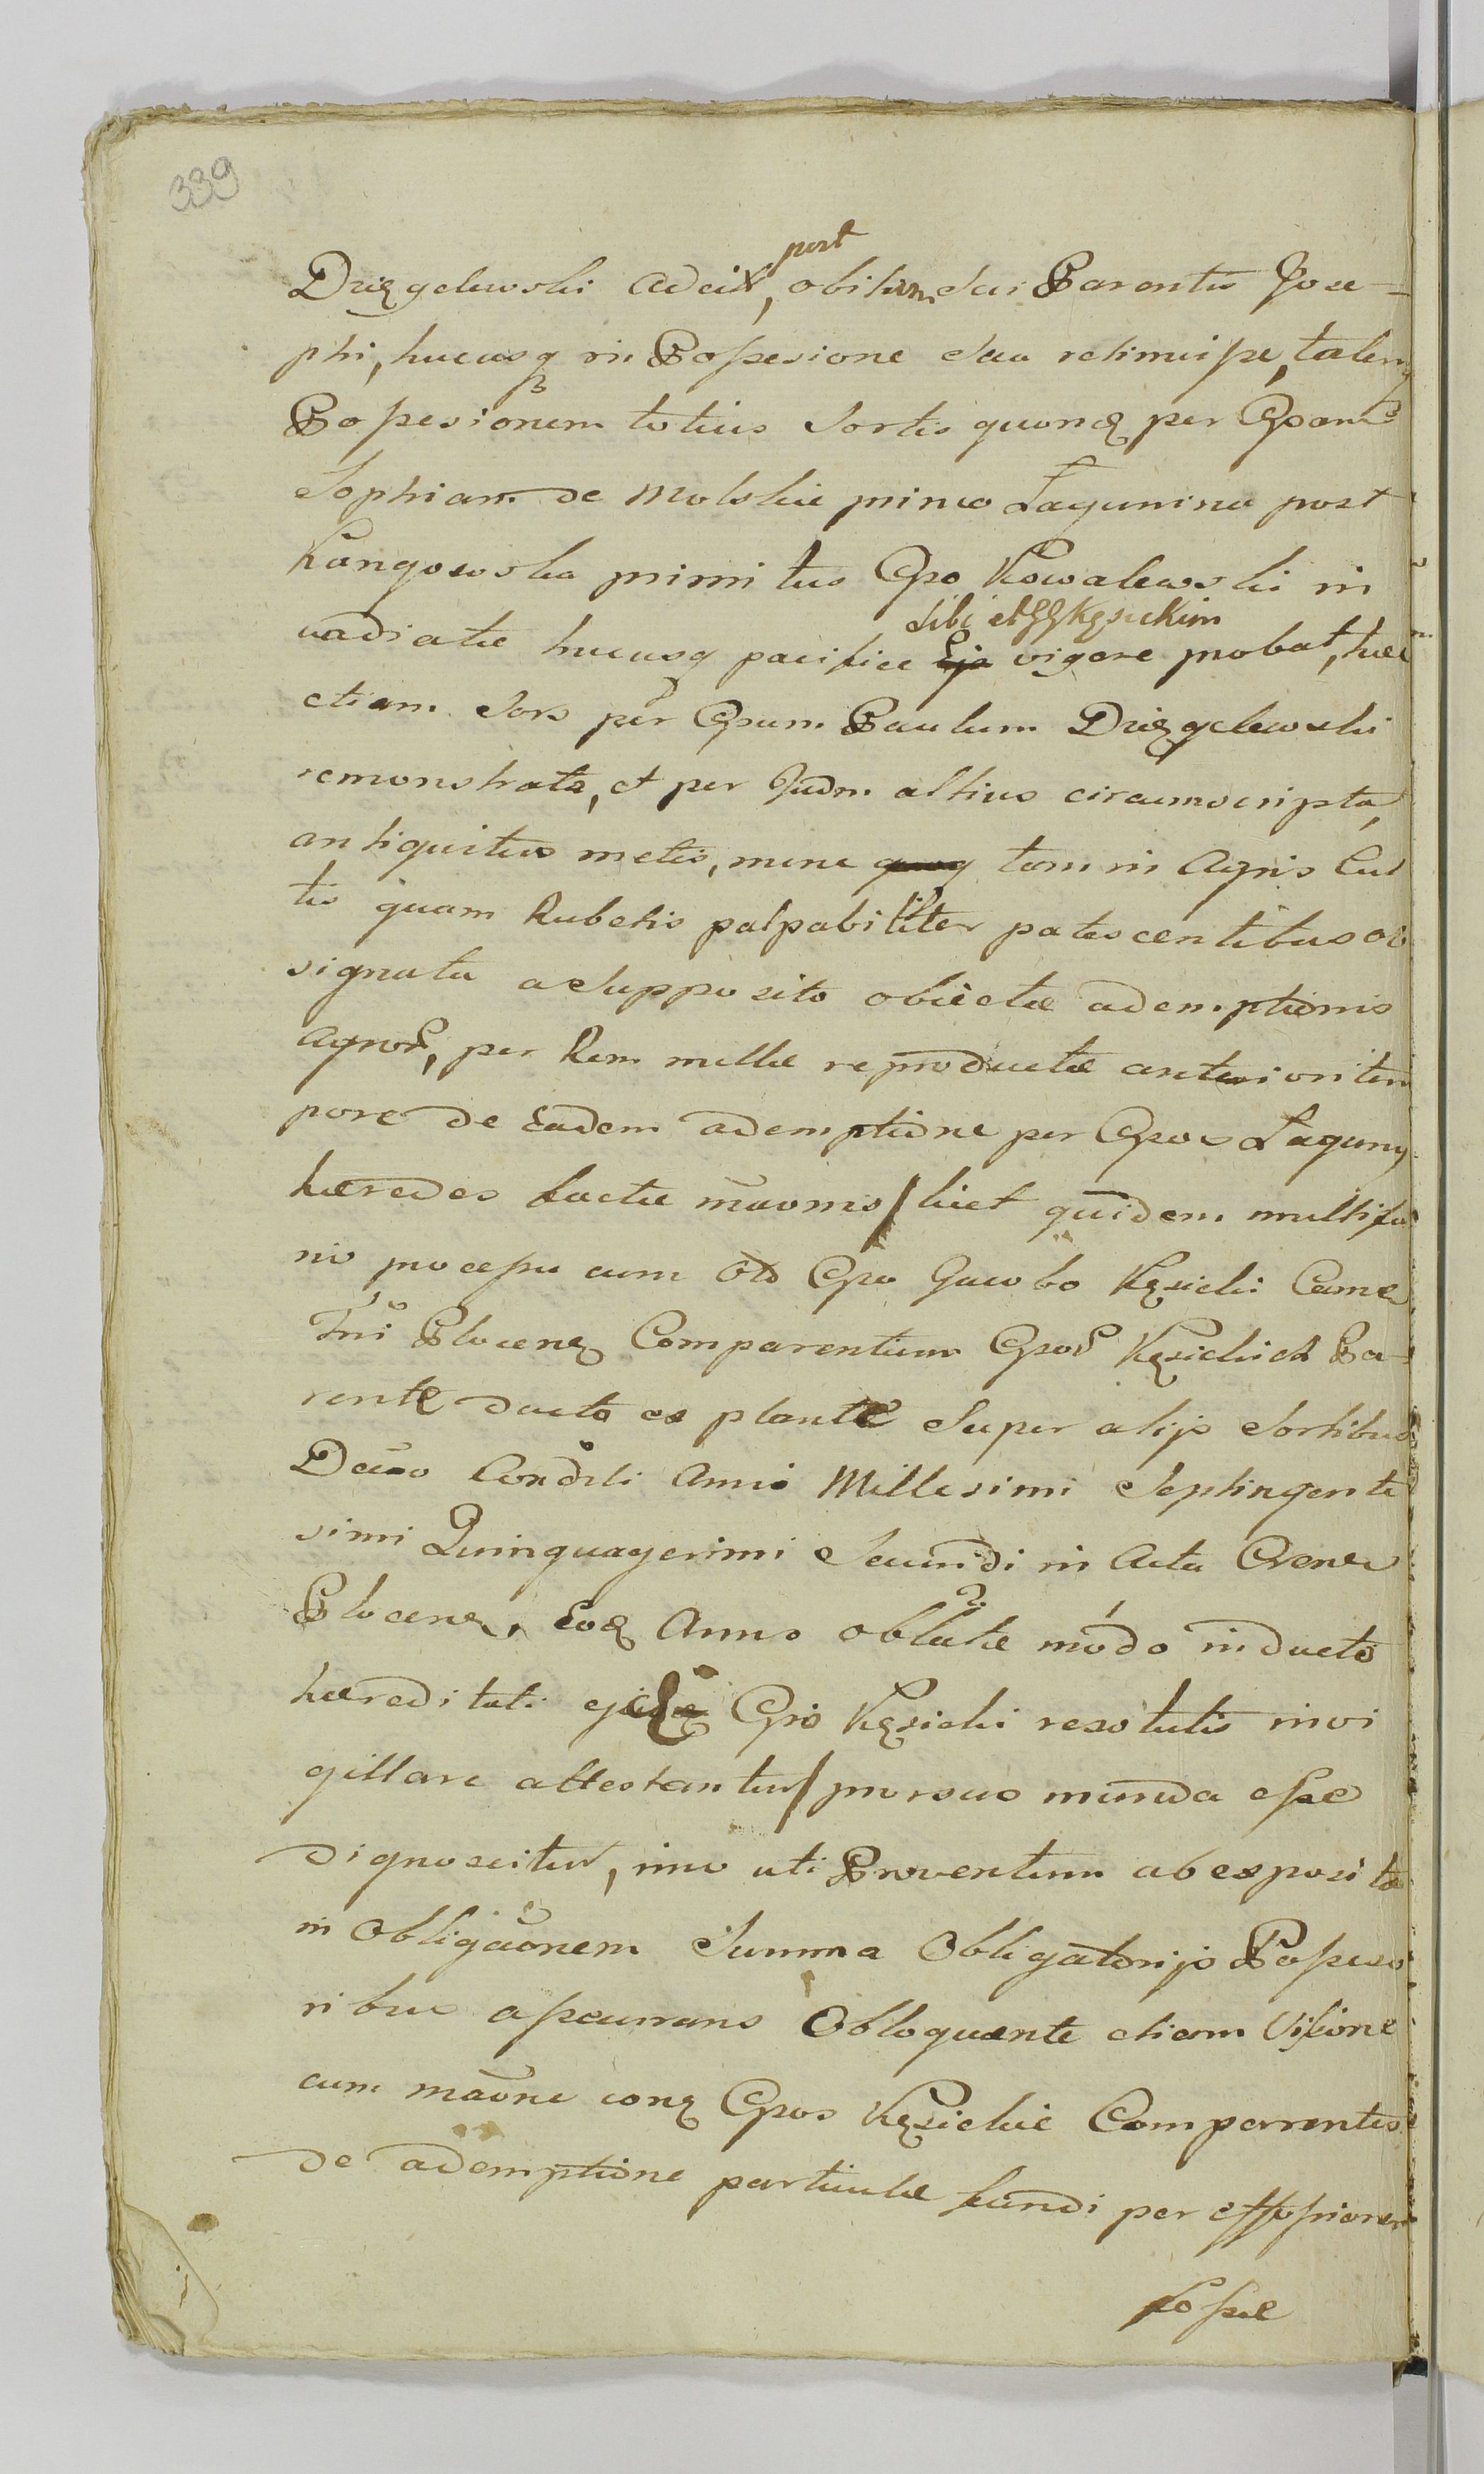 339
post
Drięgelewski adeix, obitum sui Parentis Jose-
phi, hucusq in Possesione sua retinuisse, talem
Possesionem totius Sortis quonꝫ per Gsam
Sophiam de Molskie primo Łagunina post
Kangowska primitus Gso Kowalewski in
sibi et GG Kęsickim
vadiatæ hucusq pacifice Ejs vigore probat, hæc
etiam Sors per Gsum Paulum Drięgelewski
remonstrata, et per Judm altius circumscripta,
antiquitus metis, nunc quoq tam in Agris Cul
tis quam Rubetis palpabiliter patescentibus ob
signata a supposito obiectæ ademptionis
Agror, per Rem nullæ reproductæ anteriori tem
pore de Eadem ademptione per Gsos Łaguny
hæredes factæ mãoms / licet quidem multifa
rio processu cum Gso Jacobo Kęsicki Came
Plocenꝫ Comparentium Gsor Kęsickich Pa-
rente ducto ex plantæ super alijs Sortibus
Decño Condĩli Anni Millesimi Septingente
simi Quinquagesimi Secundi in Acta Crenꝫ
Plocenꝫ, Eoꝫ Anno oblatæ modo inducto
hæreditati Gsi Kęsicki resolutis invi
gillare attestantur / prorsus munda esse
dignoscitur, imo uti Proventum ab exposita
in Obligãonem Summa Obligatorijs Possesso
ribus assecurans Obloquente etiam Visione
cum mãone conꝫ Gsos Kęsickie Comparentes
de ademptione particulæ fundi per effossionem
fossæ